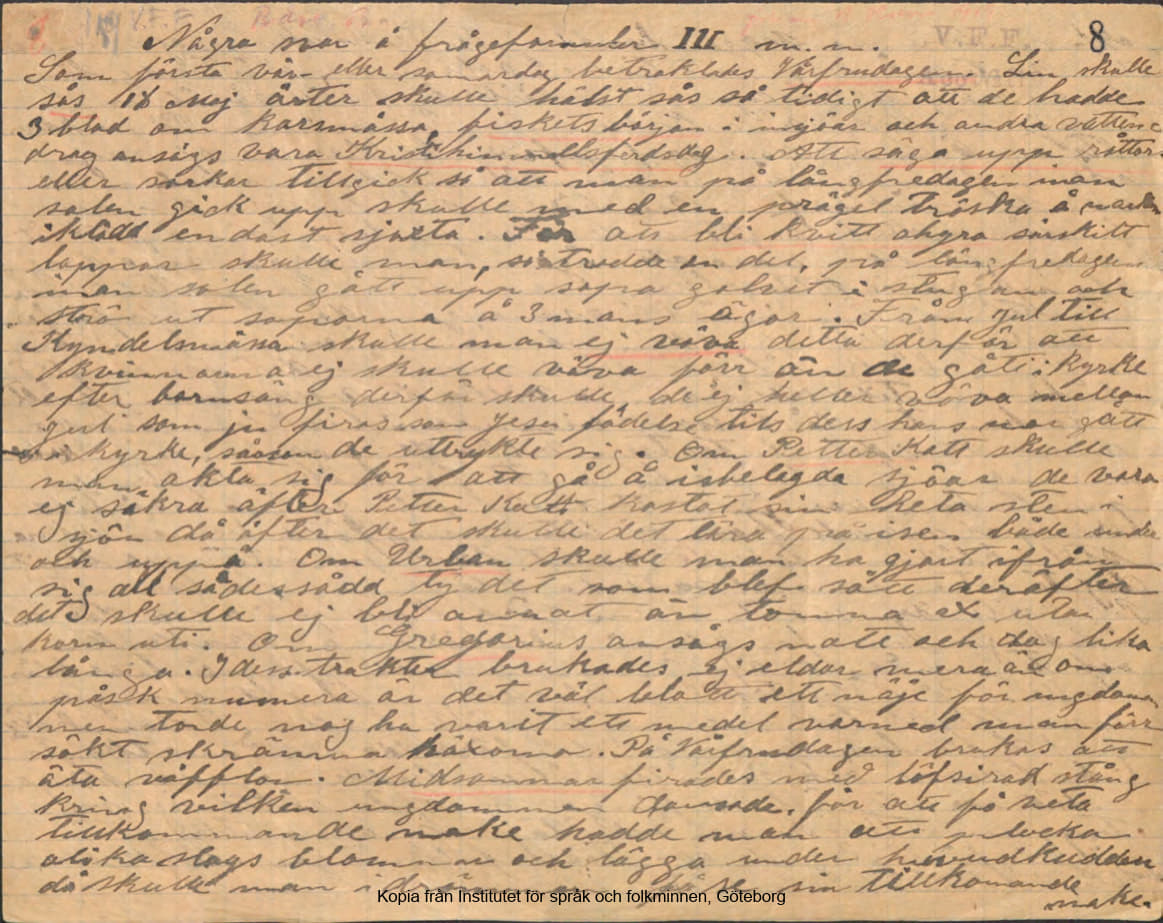 V.F.F. 8
Några svar å frågeformulär III m.m.
Som första vår- eller sommardag betraktades Vårfrudagen. Lin skulle
sås 18 Maj ärter skulle hälst sås så tidigt att de hadde
3 blad om Karsmässa, fiskets början i insjöar och andra vatten-
drag ansågs vara Kristihimmelsfärdsdag. Att säga upp råttor
eller sorkar tillgick så att man på långfredagen innan
solen gick upp skulle med en prägel tröska å marken
iklädd endast sjorta. För att bli kvitt ohyra särskilt
loppor skulle man, så trodde en del, på långfredagen
innan solen gått upp sopa golvet i stugan och
strö ut soporna å 3 mans ägor. Från jul till
Kyndelsmässa skulle man ej väva detta derför att
kvinnorna ej skulle väva förr än de gått i kyrke
efter barnsäng derför skulle de ej heller väva mellan
jul som ju firas som Jesu födelse tils dess hans mor gått
i kyrke, såsom de uttrykte sig. Om Petter Katt skulle
man akta sig för att gå å isbelagda sjöar de vara
ej säkra äfter Petter Katt kastat sin heta sten i
sjön då äfter det skulle det tära på isen både under
och uppå. Om Urban skulle man ha gjort ifrån
sig all sädessådd ty det som blef sått deräfter
det skulle ej bli annat än tomma ax utan
korn uti. Om Gregorius ansågs natt och dag lika
långa. I dess trakter brukades ej eldar mera än om
påsk numera är det väl blott ett nöje för ungdomen
men torde nog ha varit ett medel varmed man förr
sökt skrämma häxorna. På Vårfrudagen brukas att
äta våfflor. Midsommar firades med löfsirad stång
kring vilken ungdommen dansade. för att få veta
tillkommande make hadde man att plocka
olika slags blommor och lägga under huvudkudden
då skulle man i drömmen sin tillkomande
make.
Kopia från Institutet för språk och folkminnen, Göteborg